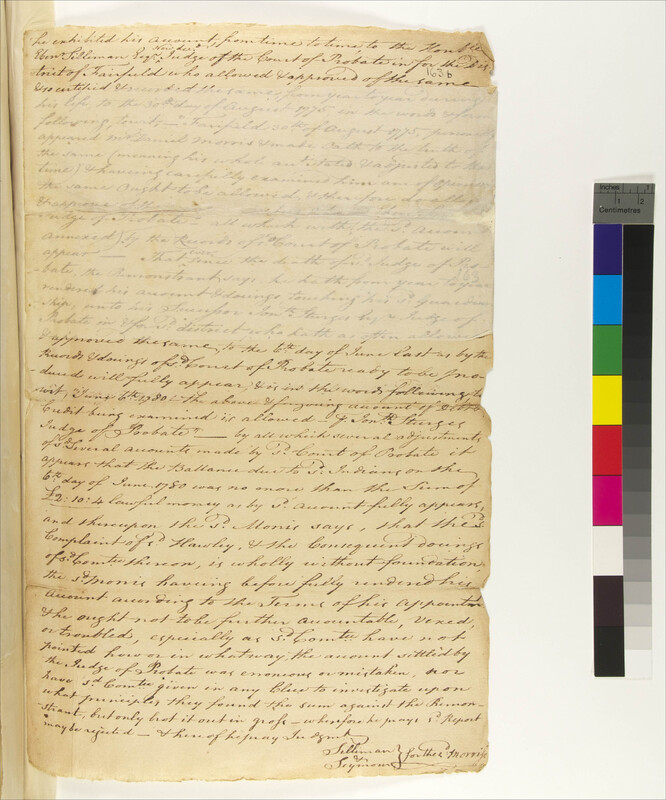 he exhibited his account, from time to time to the Honble
Ebenr. Silliman Esqr. Now decd. Judge of the Court of Probate in & for the Dis
trict of Fairfield who allowed & approved of the same
163b
& so certified & recorded the same, from year to year during
his life to the 30th day of August 1775 in the words before
following, to wit — Fairfield 30th of August 1775 personally
appeared Mr Daniel Morris & made Oath to the truth of
the same (meaning his whole acct Stated & adjusted to that
time) & having carefully examined him am of opinion
the same Ought to be allowed, & therefore do allow
& approve of the
Judge of Probate — all which with the sd. Accounts
annexed) by the Records of sd Court of Probate will
appear — That since the death of sd. Judge of Pro-
bate, the Remonstrant says he hath from year to year
rendered his account & doings touching his sd. Guardian
ship, unto his Successor Jonth. Sturges Esqr. Judge of
Probate in & for sd. district who hath as often allowed
& approved the same, to the 6th day of June last as by the
Records & doings of sd Court of Probate ready to be pro-
duced will fully appear, & is in the words following to
wit, June 6th 1780 — the above & foregoing account of Debt &
Credit being examined is allowed — Jonth. Sturges
Judge of Probate — by all which several adjustments
of sd. Several accounts made by sd. Court of Probate it
appears that the Ballance due to sd. Indians on the
6th day of June 1780 was no more than the Sum of
£2:10:4 lawful money as by sd. Account fully appears,
and thereupon the sd. Morris says, that the sd.
Complaint of sd Hawley, & the Consequent doings
of sd. Comtee thereon, is wholly without foundation
the sd Morris having before fully rendered his
account according to the Terms of his Appointmt
& he ought not to be further accountable, vexed,
or troubled, especially as sd. Comtee have not
pointed how or in what way, the account settled by
the Judge of Probate was erroneous or mistaken, nor
have sd Comtee given in any Clew to investigate upon
what principles they found the sum against the Remon-
strant, but only brot it out in gross — wherefore he prays sd Report
may be rejected — & hereof he prays Judgmt
Silliman & for the sd Morris
Seymour
Inches
1
2
Centimetres